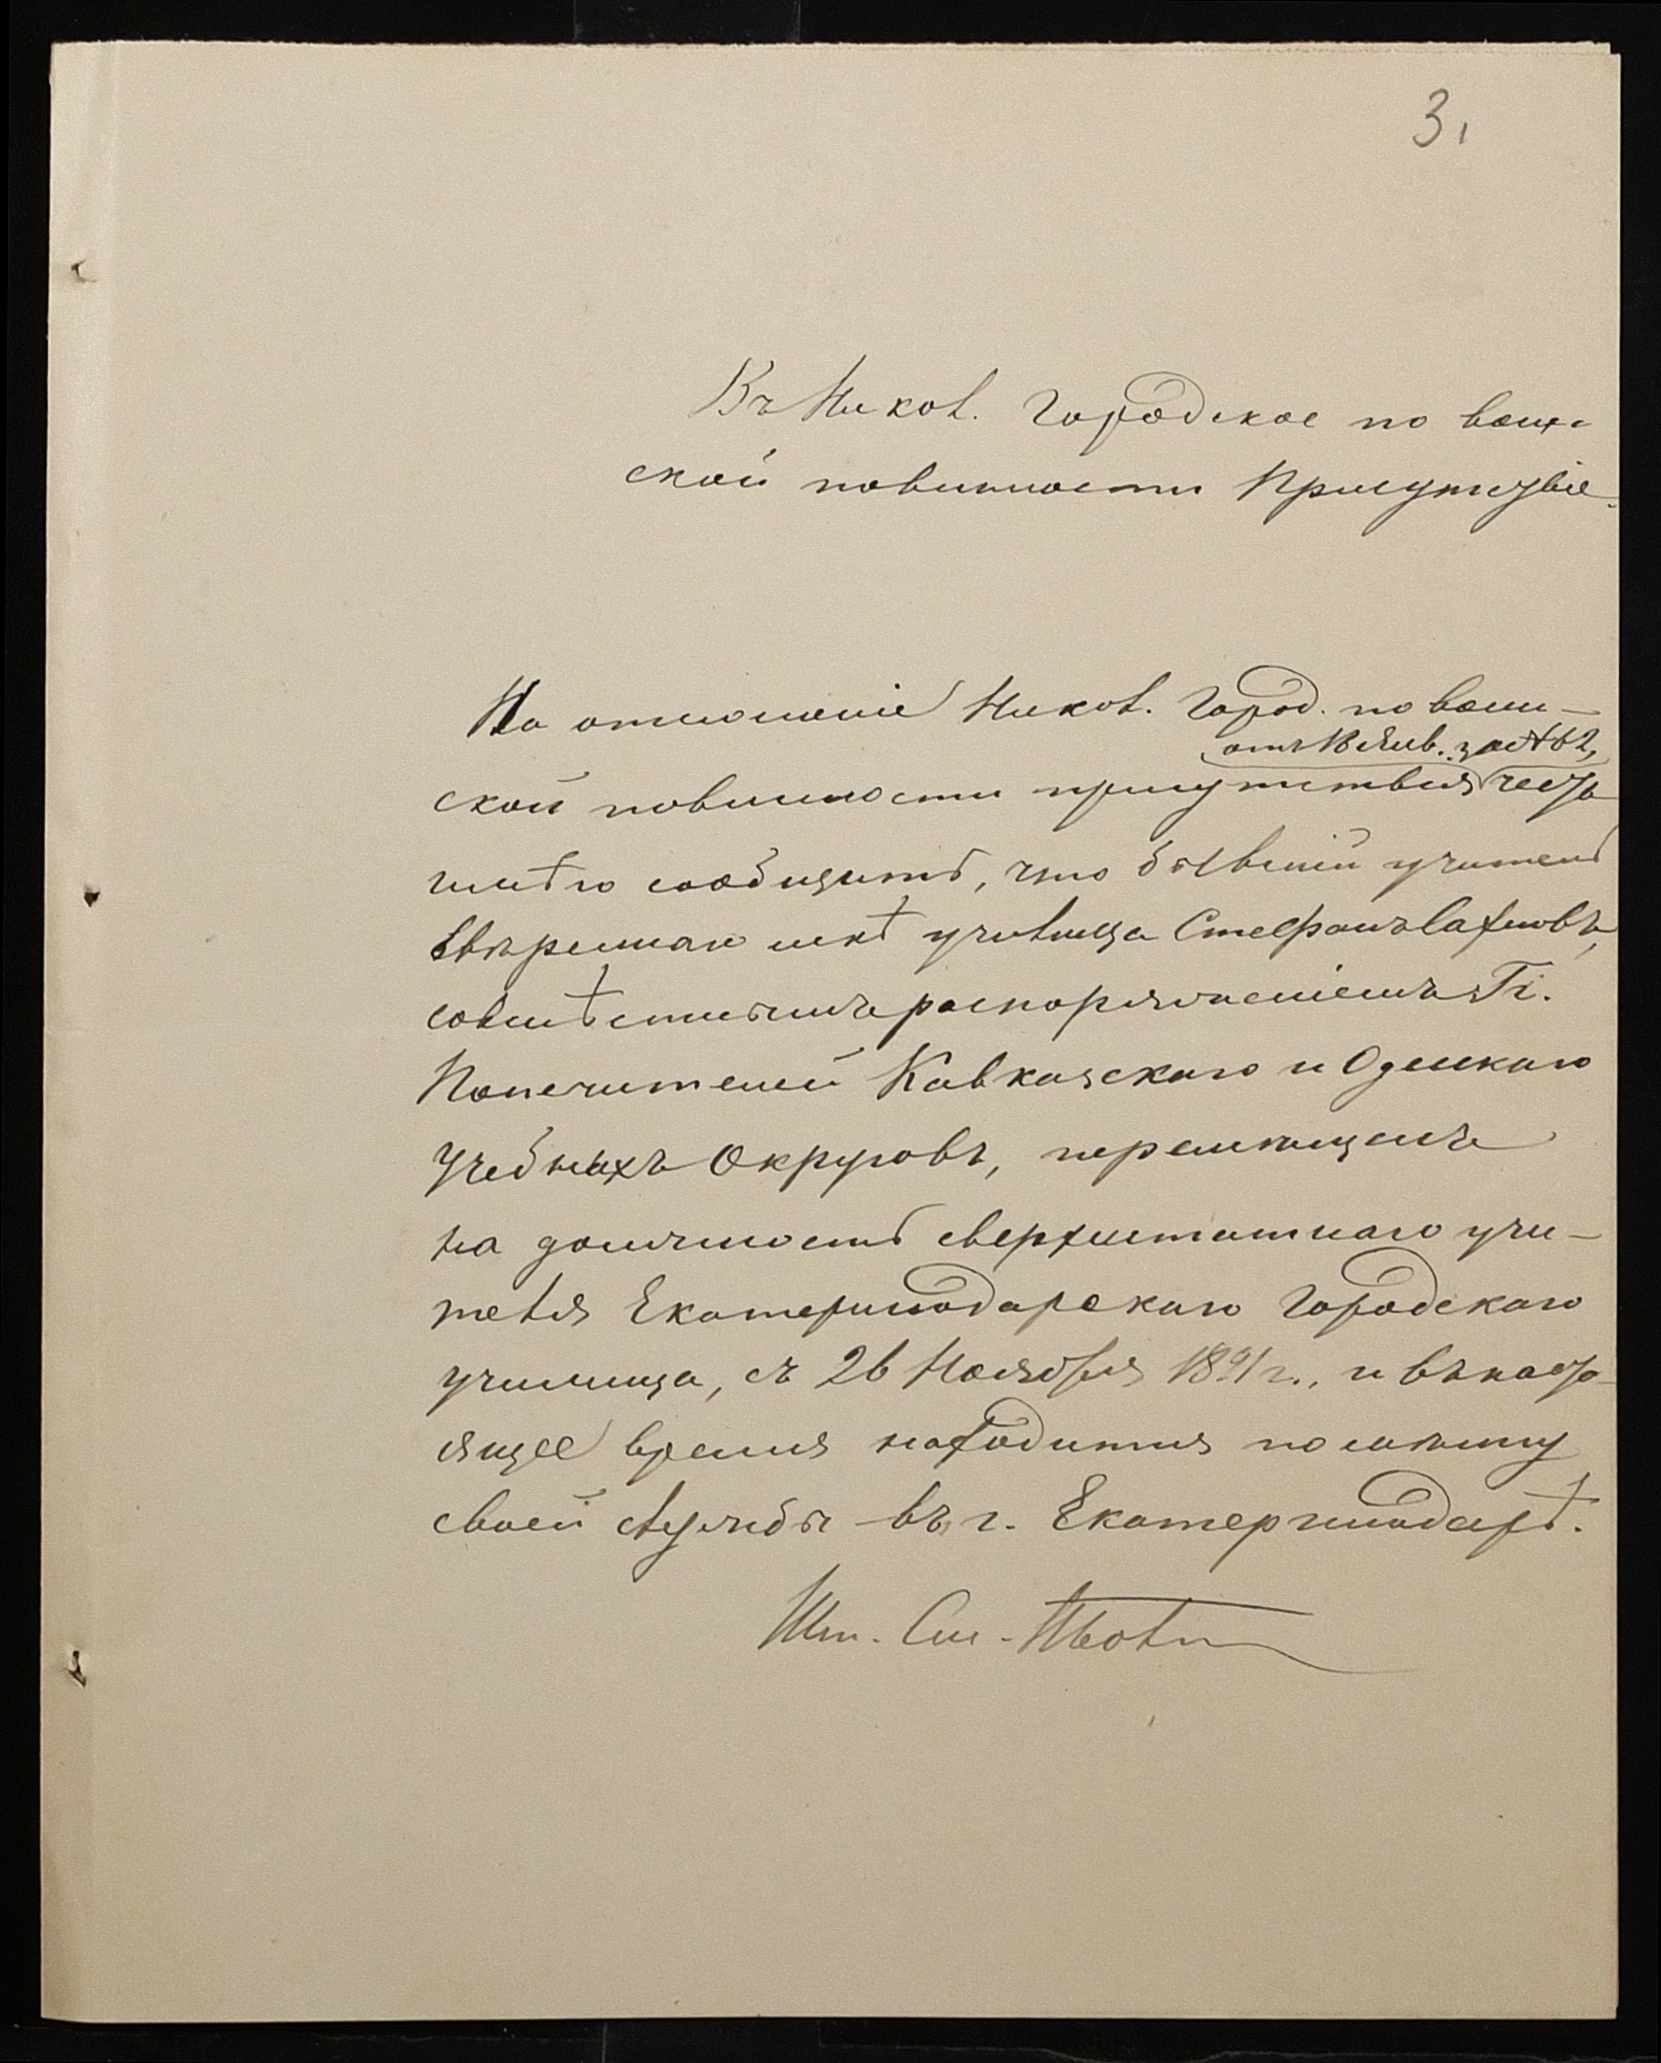 3.
Въ Никол. Городское по воин-
ской повинности Присутствіе.
На отношеніе Никол. Город. по воин-
отъ 18 Янв. за № 62,
ской повинности присутствія честь
имѣю сообщить, что бывшій учитель
ввѣреннаго мнѣ училища Стефанъ
совмѣстнымъ распоряженіемъ Гг.
Попечителей Кавказскаго и Одесскаго
Учебныхъ Округовъ, перемѣщенъ
на должность сверхштатнаго учи-
теля Екатеринодарскаго Городского
училища, съ 26 Ноября 1891 г., и въ насто-
ящее время находится по мѣсту
своей службы въ г. Екатеринодарѣ.
Шт. См.